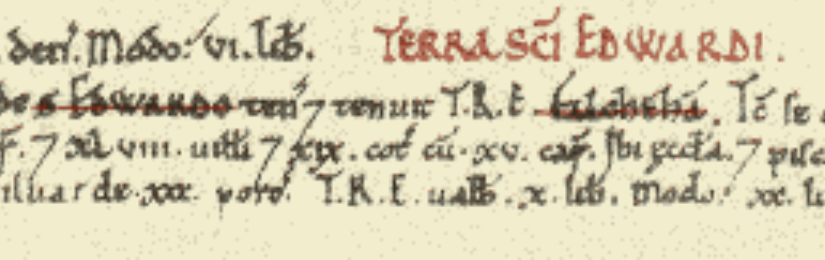 den. Modo: vi. lib. TERRA SCI EDWARDI.
EDWARDO ten 7 tenuit T.R.E. Tc se
7 xl viii. uilli 7 xix. cot cu. xv. car. Ibi eccla. 7 pisc
silua de. xxx. porc. T.R.E. ualb. x. lib. Modo. xx. li